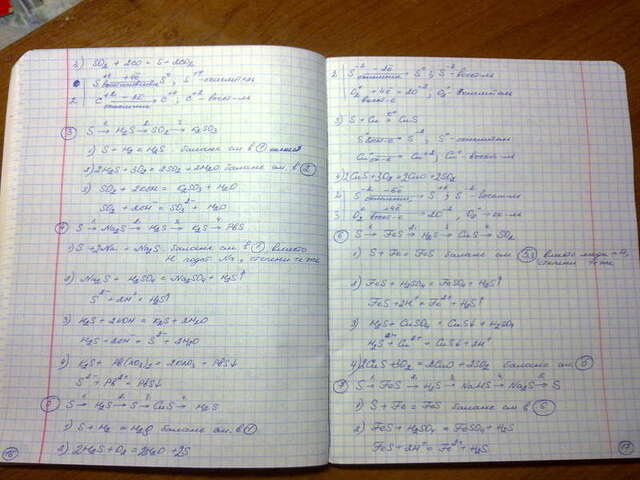 3) SO₂ + 2CO = S + 2CO₂
S⁺⁴ +4ē восстановление S⁰, S⁺⁴ - окислитель
2 | C⁺² -2ē окисление C⁺⁴, C⁺² - восст-ль
③ S →¹ H₂S →² SO₂ →³ K₂SO₃
1) S + H₂ = H₂S баланс см. в ①
2) 2H₂S + 3O₂ = 2SO₂ + 2H₂O баланс см. в ②
3) SO₂ + 2KOH = K₂SO₃ + H₂O
SO₂ + 2OH⁻ = SO₃²⁻ + H₂O
④ S →¹ Na₂S →² H₂S →³ K₂S →⁴ PbS
1) S + 2Na = Na₂S баланс см. в ①, вместо
H Na, степени те же
2) Na₂S + H₂SO₄ = Na₂SO₄ + H₂S↑
S²⁻ + 2H⁺ = H₂S↑
3) H₂S + 2KOH = K₂S + 2H₂O
H₂S + 2OH⁻ = S²⁻ + 2H₂O
4) K₂S + Pb(NO₃)₂ = 2KNO₃ + PbS↓
S²⁻ + Pb²⁺ = PbS↓
⑤ S →¹ H₂S →² S →³ CuS →
1) S + H₂ = H₂S баланс см. в ①
2) 2H₂S + O₂ = 2H₂O + 2S
16
2 | S⁻² -2ē окисление S⁰, S⁻² - восст-ль
O₂⁰ +4ē восст-е 2O⁻², O₂⁰ - окислитель
3) S + Cu = CuS
S⁰ восст-е S⁻², S⁰ - окислитель
Cu⁰ ок-е Cu⁺², Cu⁰ - восст-ль
4) 2CuS + 3O₂ = 2CuO + 2SO₂
2 | S⁻² -6ē окисление S⁺⁴, S⁻² - восст-ль
3 | O₂⁰ +4ē восст-е 2O⁻², O₂⁰ - ок-ль
⑥ S →¹ FeS →² H₂S →³ CuS →⁴ SO₂
1) S + Fe = FeS баланс см. вместо меди
степени те же
2) FeS + H₂SO₄ = FeSO₄ + H₂S↑
FeS + 2H⁺ = Fe²⁺ + H₂S↑
3) H₂S + CuSO₄ = CuS↓ + H₂SO₄
H₂S + Cu²⁺ = CuS↓ + 2H⁺
4) 2CuS + 3O₂ = 2CuO + 2SO₂ баланс см. ⑤
⑦ S →¹ FeS →² H₂S →³ NaHS →⁴ Na₂S →⁵ S
1) S + Fe = FeS баланс см. в ⑥
2) FeS + H₂SO₄ = FeSO₄ + H₂S
FeS + 2H⁺ = Fe²⁺ + H₂S
17